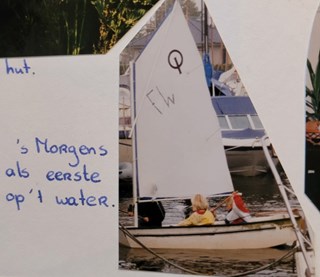 hut.
's Morgens
als eerste
op't water.
FW